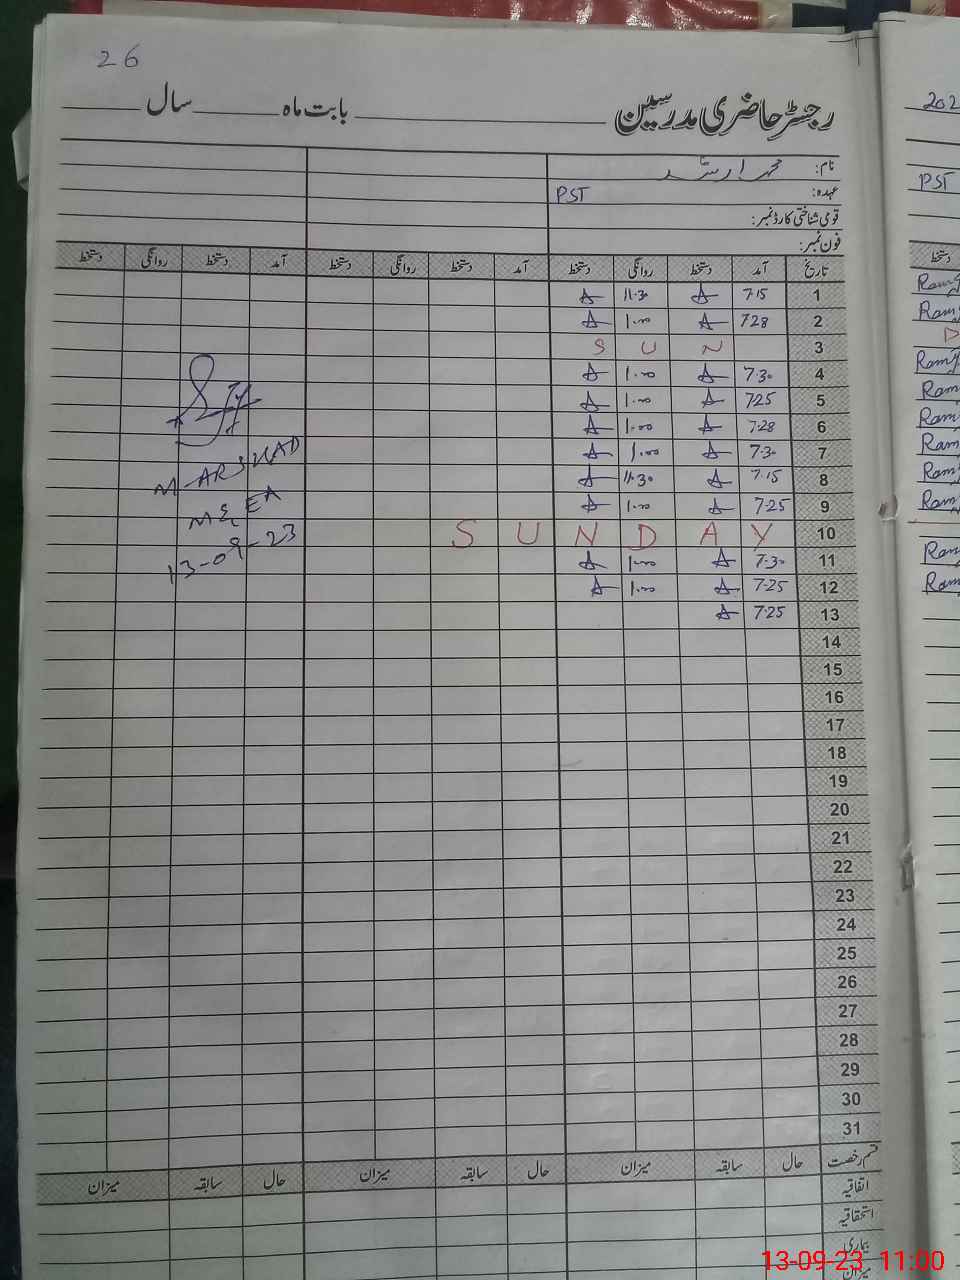 26
رجسٹر حاضری مدرسین بابت ماہ سال
نام: محمد ارشد
عہدہ: PST
قومی شناختی کارڈ نمبر:
فون نمبر:
تاریخ آمد دستخط روانگی دستخط آمد دستخط روانگی دستخط آمد دستخط روانگی دستخط
1 7.15 A 11.30 A
2 7.28 A 1.00 A
3 S U N
4 7.30 A 1.00 A
5 7.25 A 1.00 A
6 7.28 A 1.00 A
7 7.30 A 1.00 A
8 7.15 A 11.30 A
9 7.25 A 1.00 A
10 S U N D A Y
11 7.30 A 1.00 A
12 7.25 A 1.00 A
13 7.25 A
14
15
16
17
18
19
20
21
22
23
24
25
26
27
28
29
30
31
M ARSHAD
MEA
13-09-23
قسم رخصت حال سابقہ میزان حال سابقہ میزان حال سابقہ میزان
اتفاقیہ
استحقاقیہ
بیماری
میزان
202
PST
دستخط
13-09-23 11:00